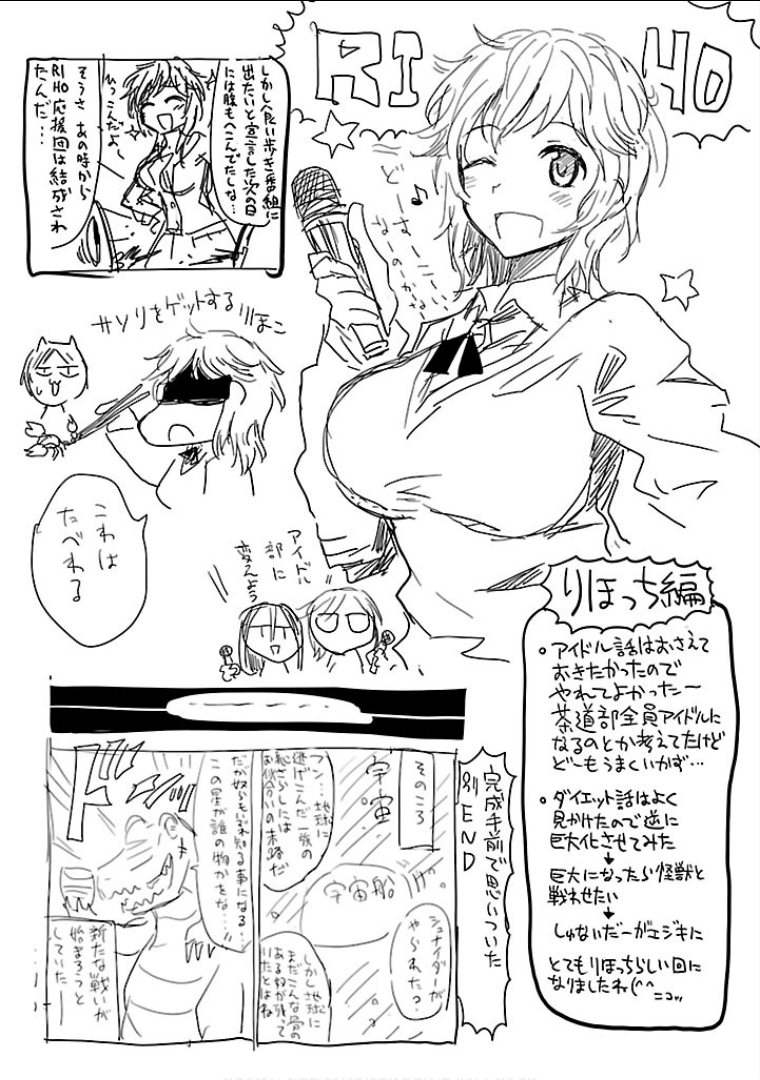 RIHO
しかし食い歩き番組に
出たいと宣言した次の日
には腹もへこんでたしな…
へっこんだよー
そうさ あの時から
RIHO応援団は結成され
たんだ…
どーはーじーのーかなー
♪
サソリをゲットするりほこ
これは
たべれる
アイドル
部に
変えよう
りほっち編
。アイドル話はおさえて
おきたかったので
やれてよかったー
茶道部全員アイドルに
なるのとか考えてたけど
どーもうまくいかず…
。ダイエット話はよく
見かけたので逆に
巨大化させてみた
↓
巨大になったら怪獣と
戦わせたい
↓
しゅないだーがエジキに
とてもりほっちらしい回に
なりましたね(^^
ニコッ
完成手前で思いついた
別END
そのころ
宇宙
宇宙船
シュナイダーが
やられた?
フン…地球に
逃げこんだ一族の
恥さらしには
お似合いの末路だ
しかし地球に
まだこんな骨の
あるヤツが残って
いたとはね
だが奴らもいずれ知る事になる…
この星が誰の物かをな…
ドドッ
新たな戦いが
始まろうと
していた―